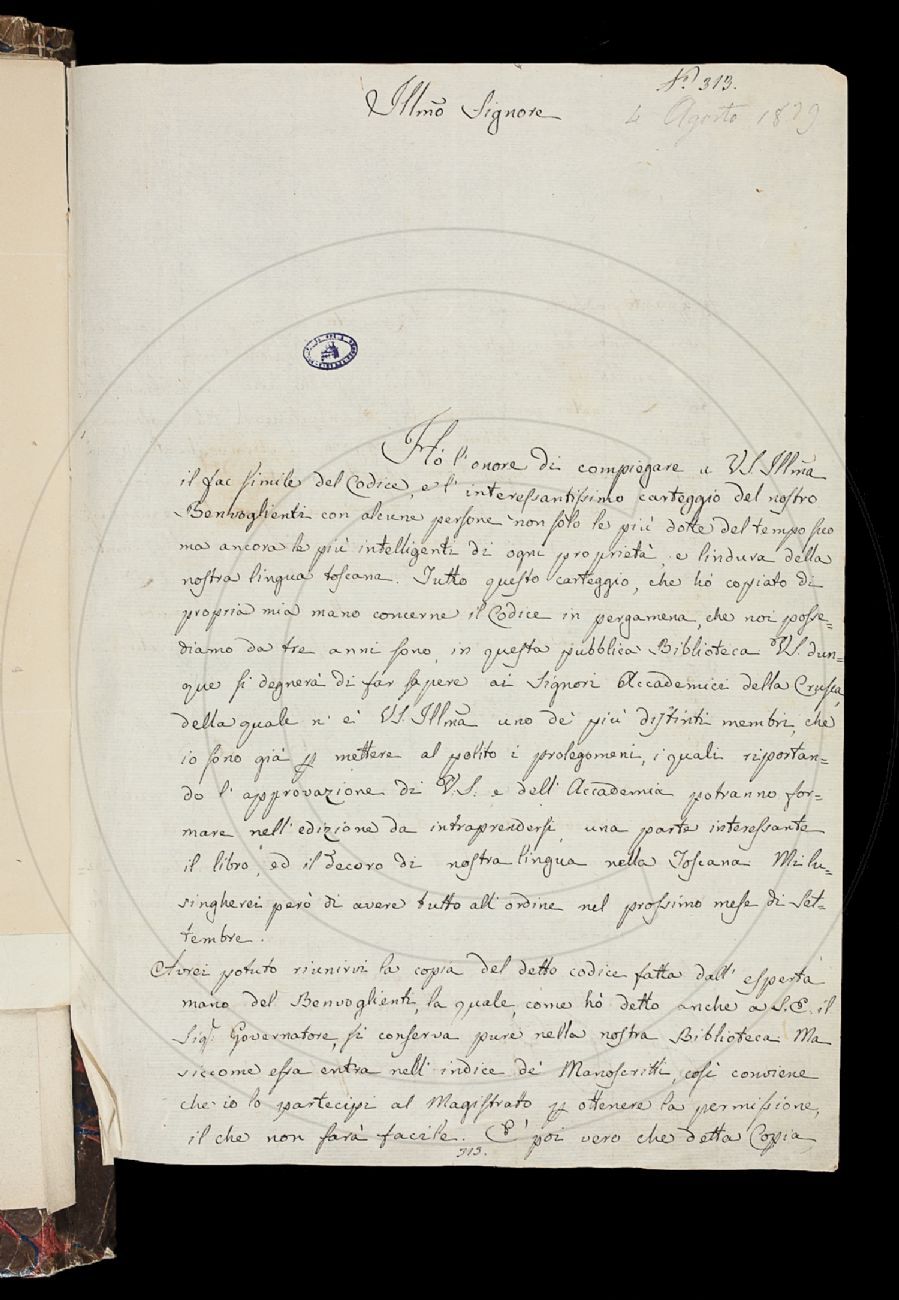 N.° 313.
Illmo Signore
4 Agosto 1829
Hó l'onore di compiegare a VS. Illma
il fac simile del Codice, e l'interessantissimo carteggio del nostro
Benvoglienti con alcune persone non sólo le più dotte del tempo suo
ma ancora le più intelligenti di ogni proprietà, e lindura della
nostra lingua toscana. Tutto questo carteggio, che hó copiato di
propria mia mano concerne il Codice in pergamena, che noi posse=
diamo da tre anni sono, in questa pubblica Biblioteca VS. dun=
que si degnerà di far sapere ai Signori Accademici della Crusca,
della quale n'ei VS. Illma uno de' più distinti membri, che
io sono già p mettere al polito i prolegomeni, i quali riportan=
do l'approvazione di V.S. e dell'Accademia potranno for=
mare nell'edizione da intraprendersi, una parte interessante
il libro, ed il decoro di nostra lingua nella Toscana Mi lu=
singherei però di avere tutto all'ordine nel prossimo mese di Set=
tembre.
Avrei potuto riunirvi la copia del detto codice fatta dall'esperta
mano del Benvoglienti, la quale, come hó detto anche a S.E. il
Sigr Governatore, si conserva pure nella nostra Biblioteca Ma
siccome essa entra nell'indice de' Manoscritti, così conviene
che io lo partecipi al Magistrato p ottenere la permissione,
il che non sarà facile. E' poi vero che detta Copia
313.